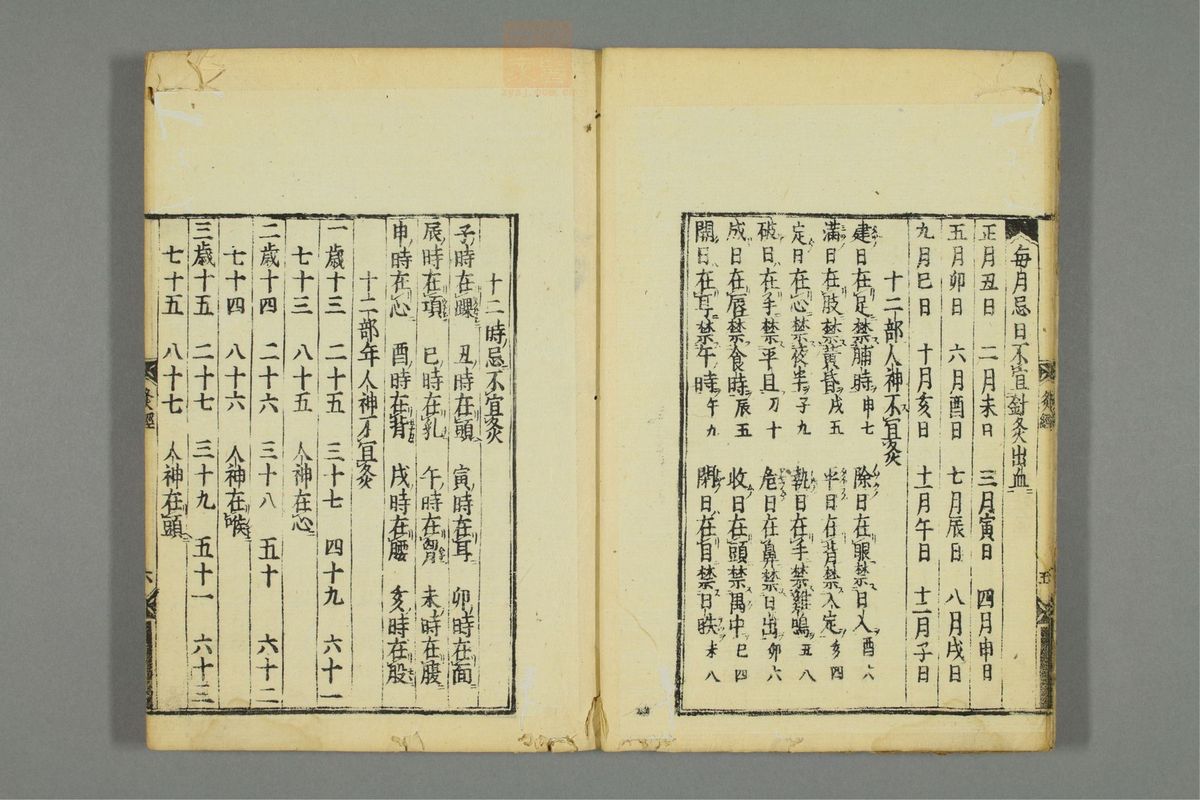 毎月忌日不宜針灸出血
正月丑日 二月未日 三月寅日 四月申日
五月卯日 六月酉日 七月辰日 八月戌日
九月巳日 十月亥日 十一月午日 十二月子日
十二部人神不宜灸
建日在足禁晡時申七 除日在眼禁日入酉六
滿日在肢禁黄昏戌五 平日在背禁人定亥四
定日在心禁夜半子九 執日在手禁雞鳴丑八
破日在手禁平旦刀十 危日在鼻禁日出卯六
成日在唇禁食時辰五 收日在頭禁禺中巳四
開日在耳禁午時午九 閉日在目禁日昳未八
灸經
五
十二時忌不宜灸
子時在踝 丑時在頭 寅時在耳 卯時在面
辰時在項 巳時在乳 午時在胷 未時在腹
申時在心 酉時在背 戌時在腰 亥時在股
十二部年人神不宜灸
一歳十三 二十五 三十七 四十九 六十一
七十三 八十五 人神在心
二歳十四 二十六 三十八 五十 六十二
七十四 八十六 人神在喉
三歳十五 二十七 三十九 五十一 六十三
七十五 八十七 人神在頭
灸經
六